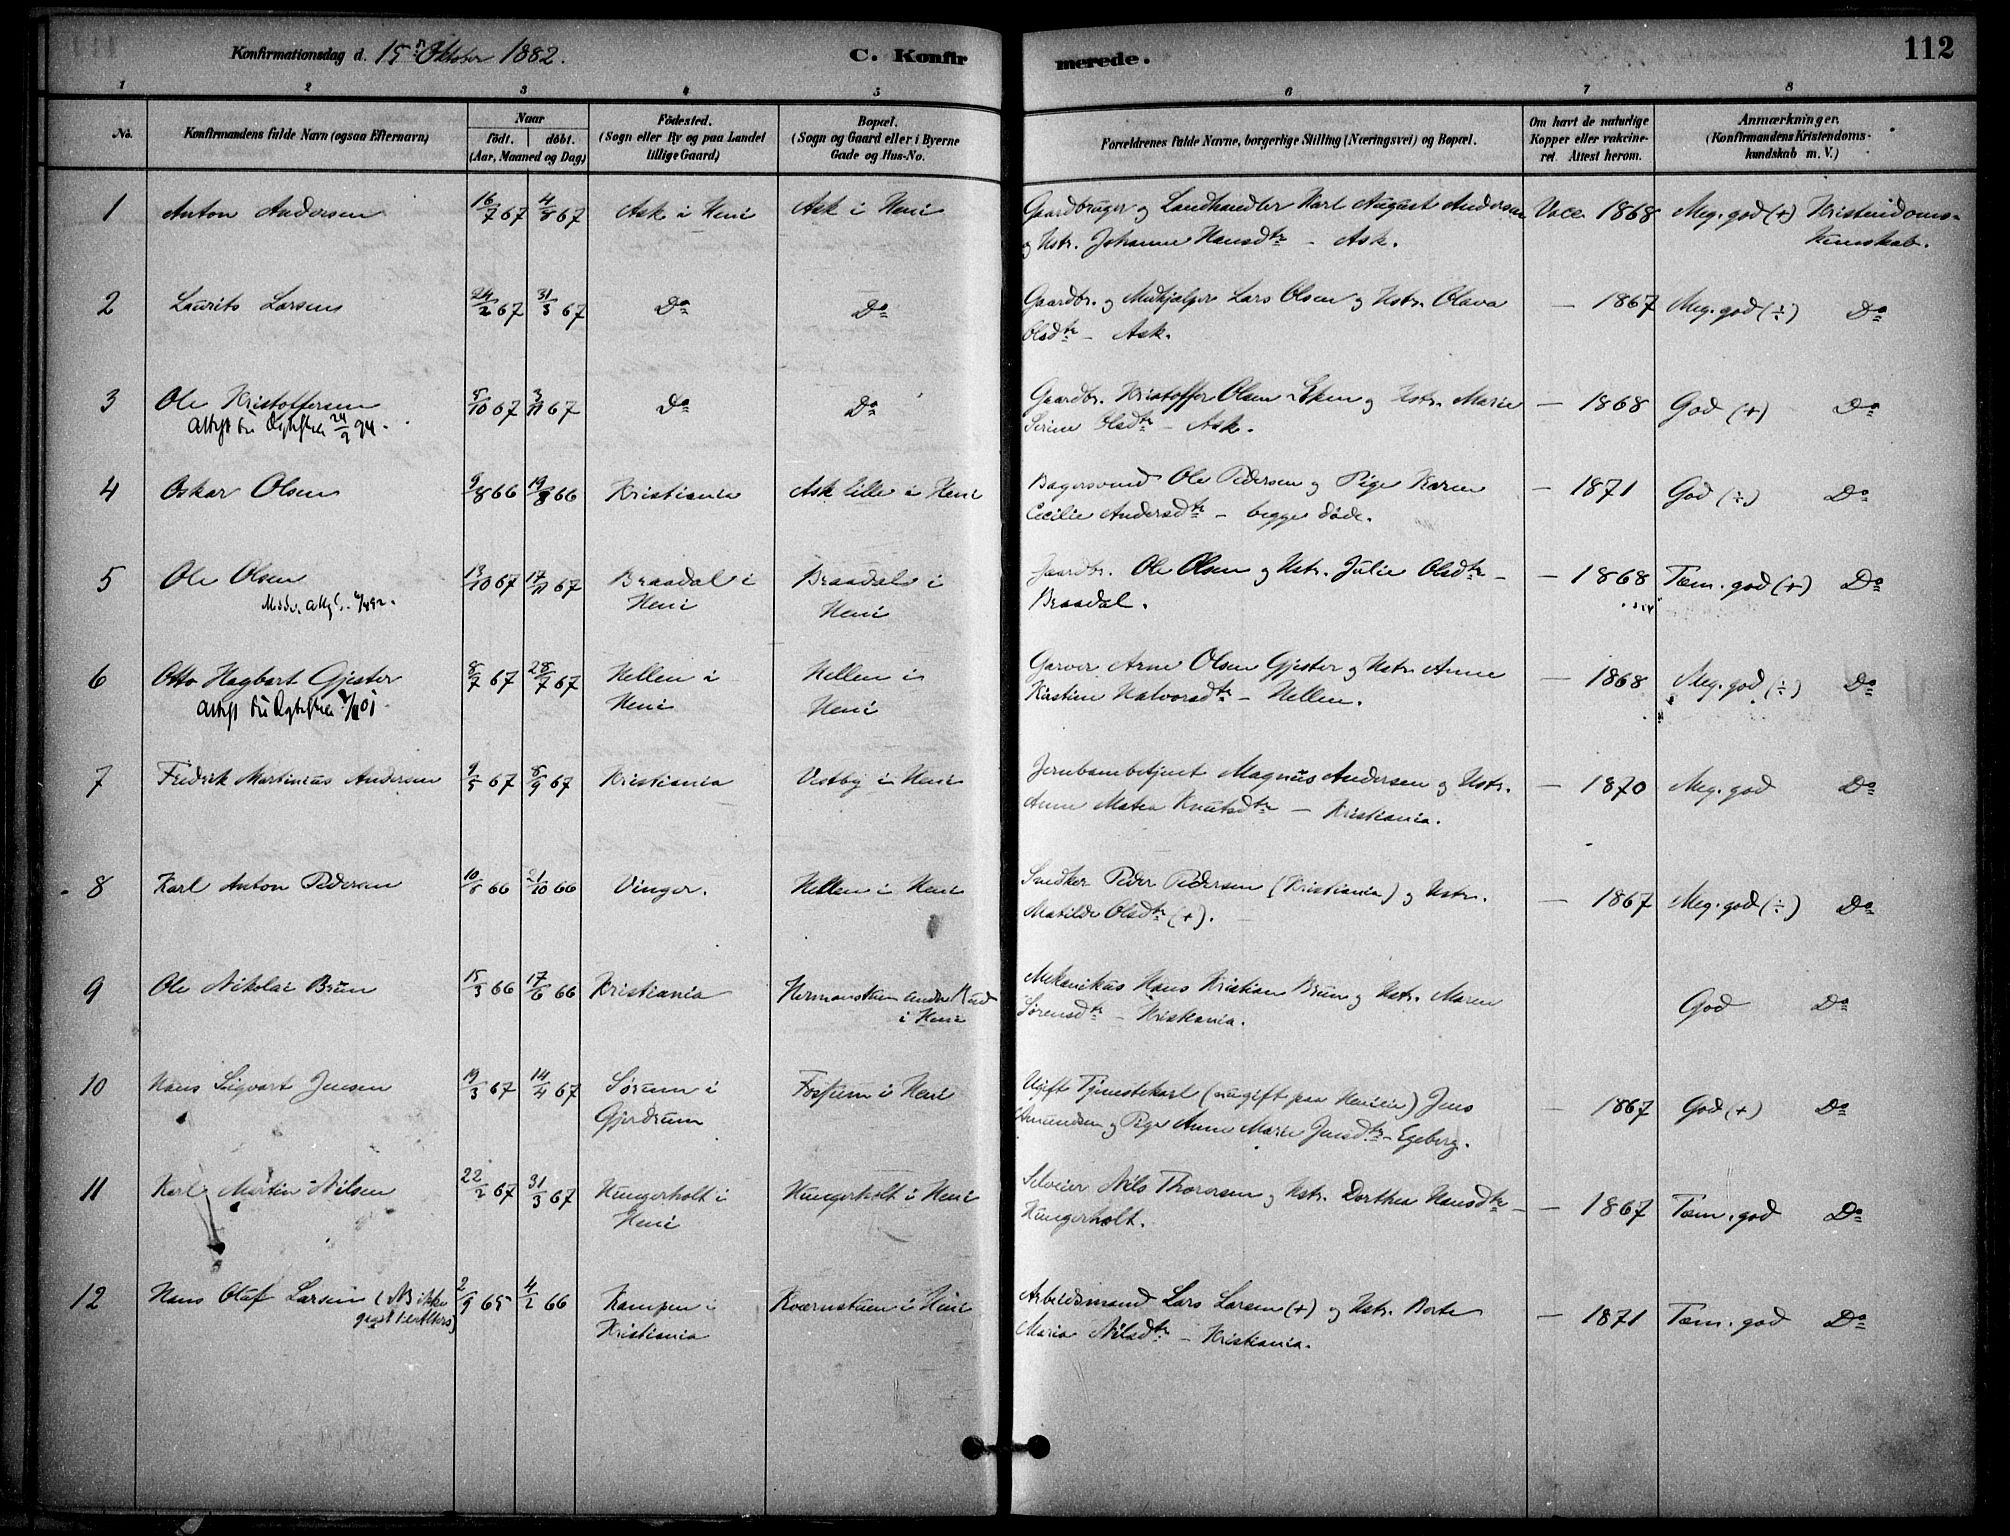 Konfirmationsdag d. 15de Oktober 1882.
C. Konfirmerede.
112
1 2 3 4 5 6 7 8
No.
Konfirmandens fulde Navn (ogsaa Efternavn)
Naar
födt. döbt.
(Aar, Maaned og Dag)
Födested.
(Sogn eller By og paa Landet
tillige Gaard)
Bopæl.
(Sogn og Gaard eller i Byerne
Gade og Hus-No.
Forældrenes fulde Navne, borgerlige Stilling (Næringsvei) og Bopæl.
Om havt de naturlige
Kopper eller vakcine-
ret Attest herom.
Anmærkninger.
(Konfirmandens Kristendoms-
kundskab m. V.)
1 Anton Andersen 16/7 67 4/8 67 Ask i Heni Ask i Heni Gaardbruger og Landhandler Karl August Andersen Vace. 1868 Meg. god (+) Kristendoms-
og Hstr. Johanne Hansdtr – Ask. Kunskab.
2 Laurits Larsen 24/2 67 31/3 67 Do Do Gaardbr. og Medhjælper Lars Olsen og Hstr. Olava — 1867 Meg. god (÷) Do
Olsdtr – Ask.
3 Ole Kristoffersen 5/10 67 3/11 67 Do Do Gaardbr. Kristoffer Olsen og Hstr. Marie — 1868 God (+) Do
24/9 94. Olsdtr – Ask.
4 Oskar Olsen 9/8 66 19/8 66 Kristiania Ask lille i Heni Bagersvend Ole Pedersen og Pige Karen — 1871 God (÷) Do
Cecilie Andersdtr – begge døde.
5 Ole Olsen 13/10 67 17/11 67 Braadal i Braadal i Gaardbr. Ole Olsen og Hstr. Julie Olsdtr – — 1868 Tæm. god (+) Do
Heni Heni Braadal.
6 Otto Hagbart Gjester 8/7 67 28/7 67 Hellen i Hellen i Garver Arne Olsen Gjester og Hstr. Anne — 1868 Meg. god (÷) Do
Heni Heni Kirstine Halvorsdtr – Hellen.
7 Fredrik Martinius Andersen 9/5 67 8/9 67 Kristiania Vestby i Heni Jernbanebetjent Magnus Andersen og Hstr. — 1870 Meg. god Do
Anne Matea Knutsdtr – Kristiania.
8 Karl Anton Pedersen 10/8 66 21/10 66 Vinger. Hellen i Heni Snedker Peder Pedersen (Kristiania) og Hstr. — 1867 Meg. god (÷) Do
Matilde Olsdtr (+).
9 Ole Nikolai Brun 15/3 66 17/6 66 Kristiania Hermanstuen under Rud Mekanikus Hans Kristian Brun og Hstr. Maren God Do
i Heni Sørensdtr – Kristiania.
10 Hans Sigvart Jensen 19/3 67 14/4 67 Sørum i Foskum i Heni Ugift Tjenestekarl (nu gift paa) Jens — 1867 God (+) Do
Gjerdrum Amundsen og Pige Anne Marie Jensdtr – Egeberg.
11 Karl Martin Nilsen 22/2 67 31/3 67 Hungerholt i Hungerholt i Heni Selveier Nils Thoresen og Hstr. Dorthea Hansdtr – — 1867 Tæm. god Do
Heni Hungerholt.
12 Hans Olaf Larsen (NB ikke 2/9 65 4/2 66 Kampen i Kværnstuen i Heni Arbeidsmand Lars Larsen (+) og Hstr. Berte — 1871 Tæm. god Do
Kristiania Maria Nilsdtr – Kristiania.